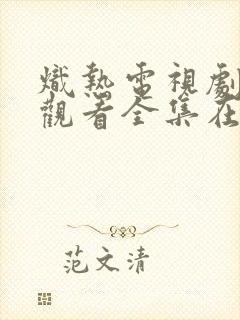 熾熱電視劇
觀看全集在
范文清